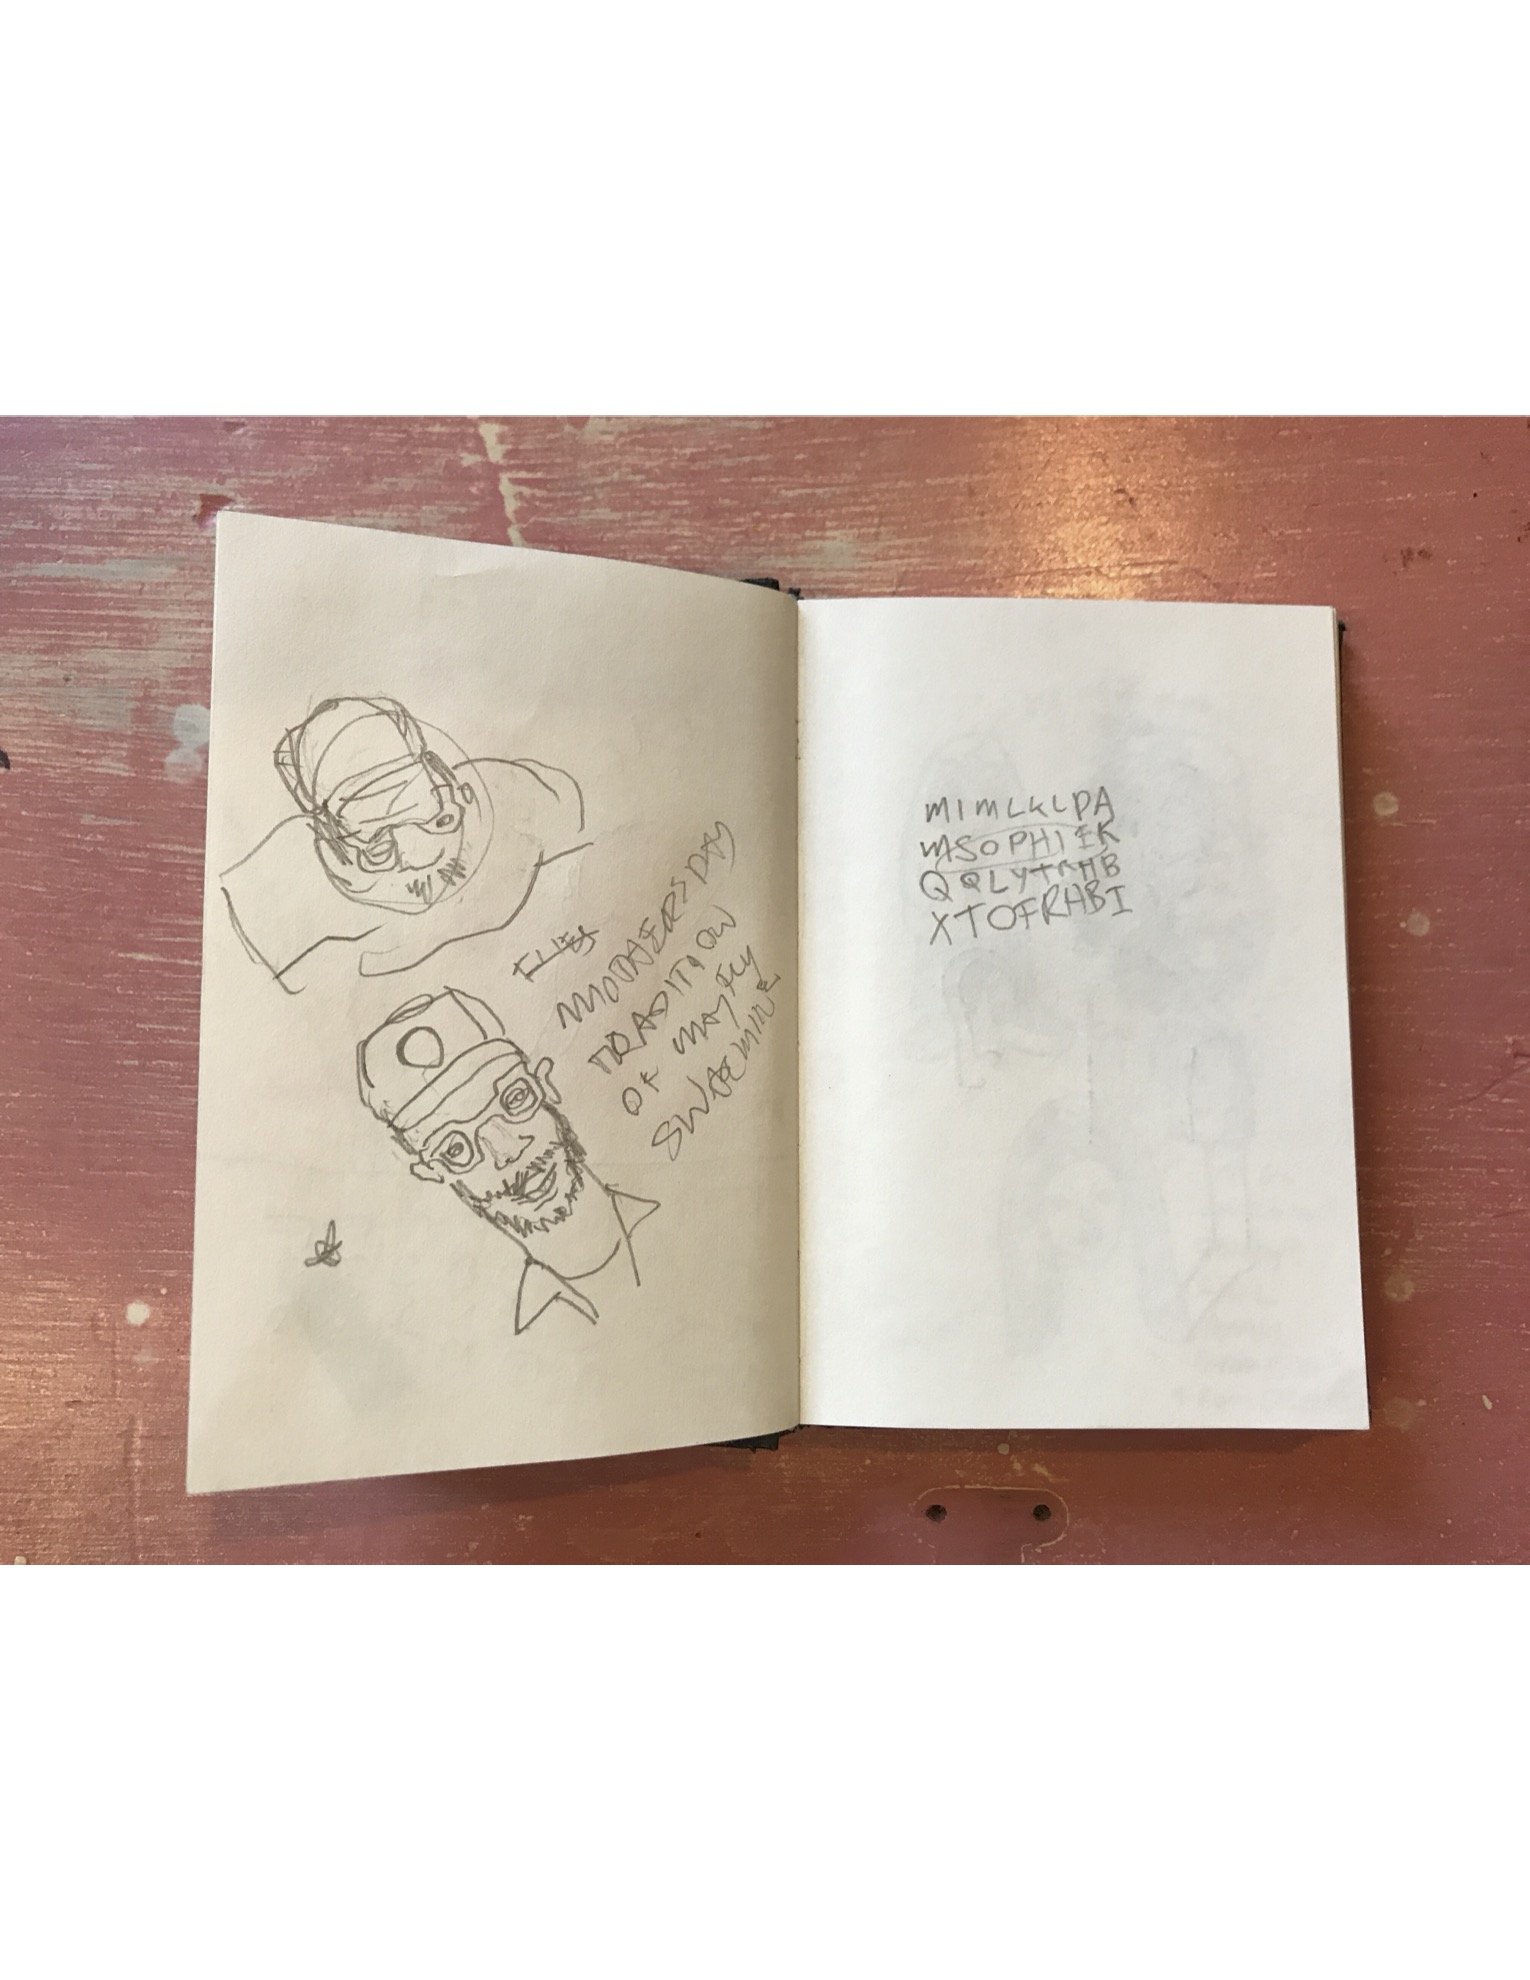 FLIES
MOTHERS DAY
TRADITION
OF MAYFLY
SWARMING
MIMLKLPA
MSOPHIEK
QQLYTRHB
XTOFRHBI